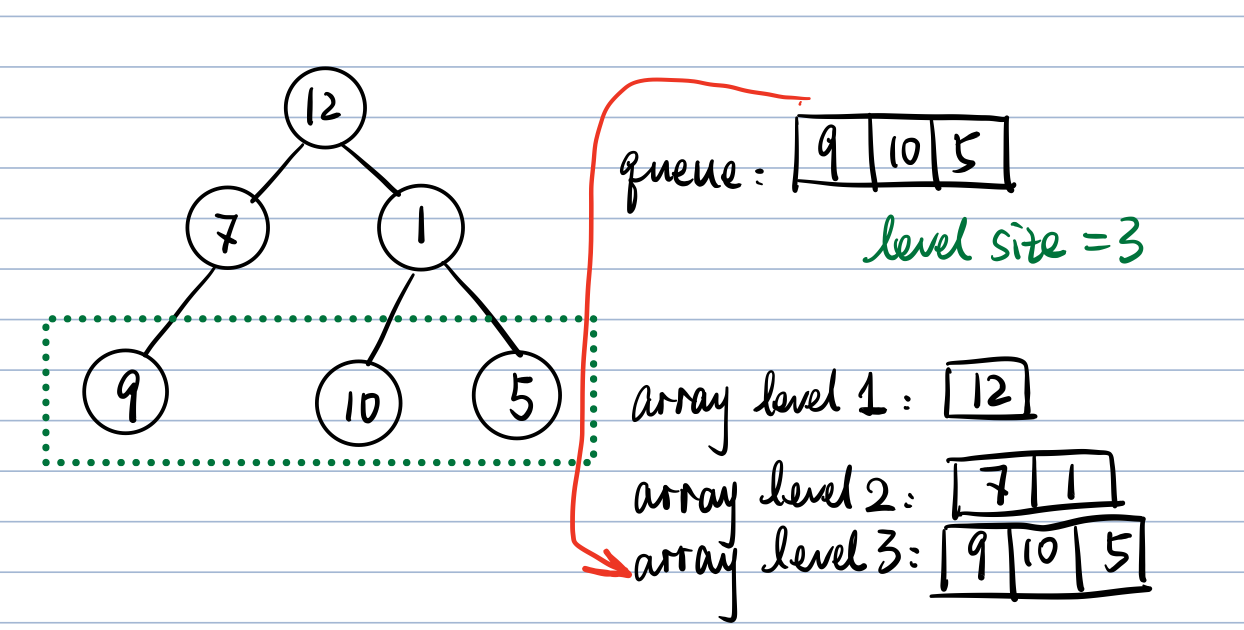 12
7 1
9 10 5
queue: 9 10 5
level size = 3
array level 1: 12
array level 2: 7 1
array level 3: 9 10 5